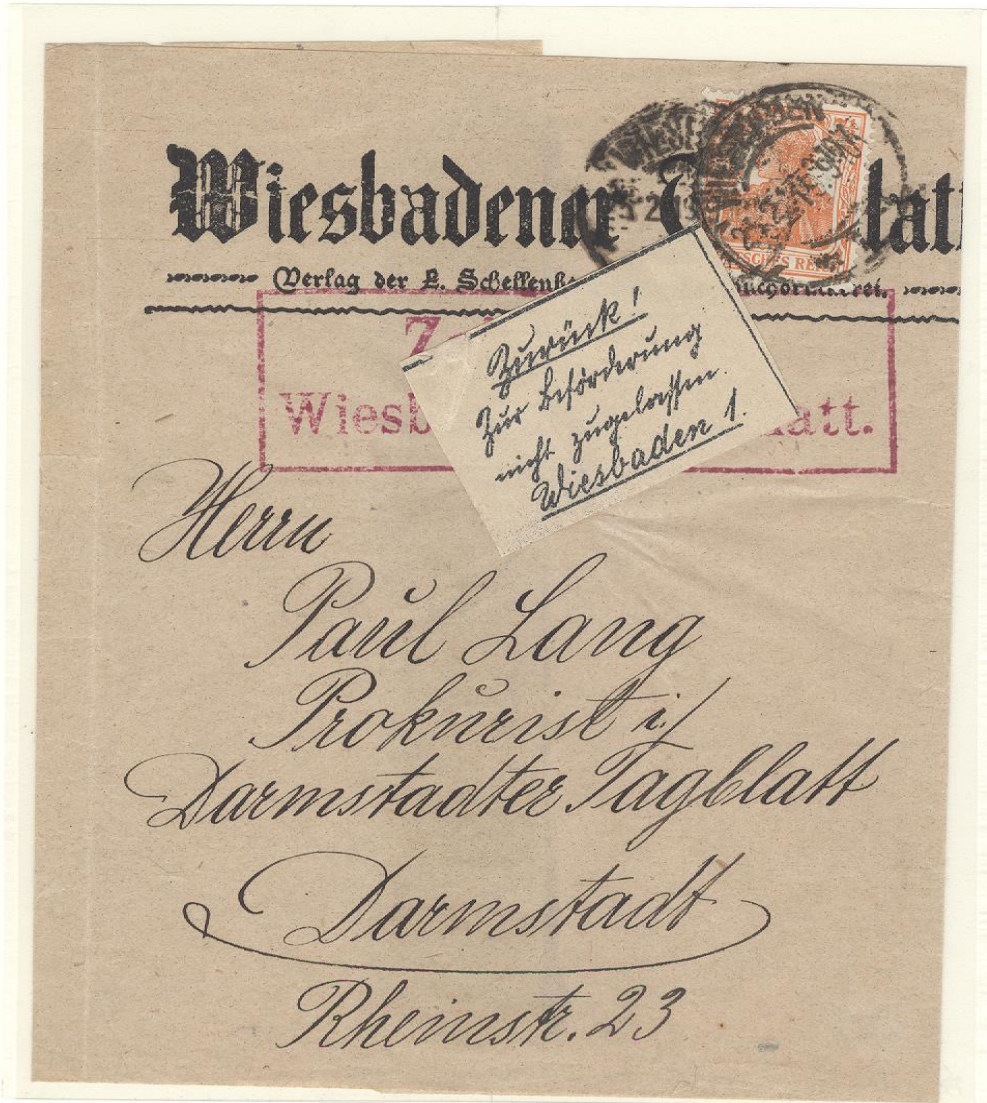 Wiesbadener T latt
Verlag der L. Schellenb uchdruckerei.
WIESBADEN
DEUTSCHES REICH
Z
Wiesb latt.
Zurück!
Zur Beförderung
nicht zugelassen.
Wiesbaden 1.
Herrn
Paul Lang
Prokurist i/
Darmstadter Tagblatt
Darmstadt
Rheinstr. 23